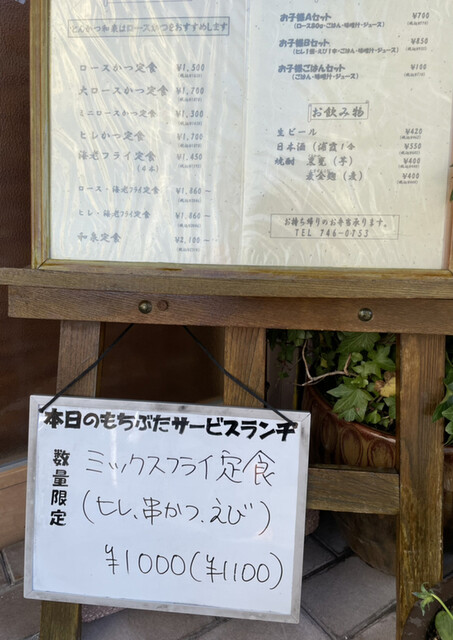 とんかつ和泉はロースかつをおすすめします
ロースかつ定食 ¥1,500
大ロースかつ定食 ¥1,700
ミニロースかつ定食 ¥1,300
ヒレかつ定食 ¥1,700
海老フライ定食 ¥1,450
(4本)
ロース・海老フライ定食 ¥1,860〜
ヒレ・海老フライ定食 ¥1,860〜
和泉定食 ¥2,100〜
お子様Aセット ¥700
(ロース80g・ごはん・味噌汁・ジュース)
お子様Bセット ¥850
お子様ごはんセット ¥100
(ごはん・味噌汁・ジュース)
お飲み物
生ビール ¥420
日本酒(浦霞1合 ¥550
焼酎 黒霧(芋) ¥400
(麦) ¥400
お持ち帰りのお弁当承ります。
TEL 746-0753
本日のもちぶたサービスランチ
数量限定
ミックスフライ定食
(ヒレ、串かつ、えび)
¥1000(¥1100)